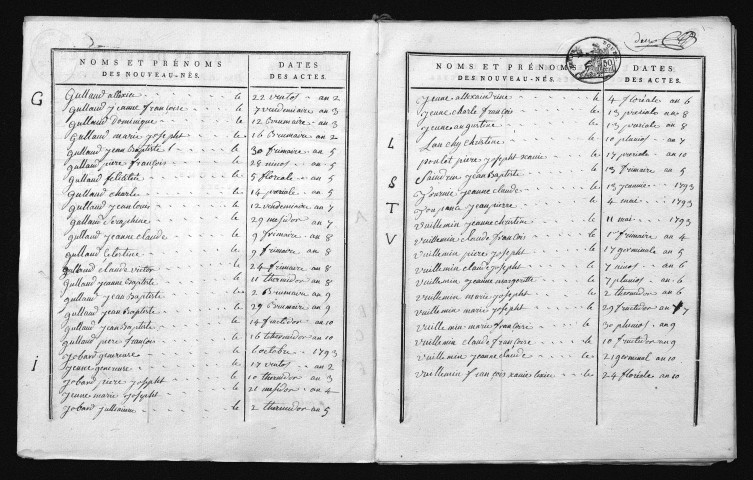 NOMS ET PRÉNOMS DATES
DES NOUVEAU-NÉS. DES ACTES.
G
gullaud le 22 ventos - an 2
gullaud jeanne francoise le 7 vendemiaire an 3
gullaud dominique le 12 Brumaire an 3
gullaud marie josepht le 16 Brumaire an 2
gullaud jean Baptiste le 30 frimaire an 5
gullaud piere françois le 28 nivos - an 5
gullaud felicité le 5 floreale - an 5
gullaud charle le 14 preriale an 5
gullaud jean louis le 12 vendemiaire an 7
gullaud Seraphine le 29 mesidor an 7
gullaud jeanne claude le 9 frimaire an 8
gullaud Celestine le 9 frimaire an 8
gullaud claude victor le 24 frimaire an 8
gullaud jeanne Baptiste le 11 thermidor an 8
gullaud jean Baptiste le 2 Brumaire an 9
gullaud jean Baptiste le 29 Brumaire an 9
gullaud jean Baptiste le 14 fructidor an 10
gullaud piere françois le 16 thermidor an 10
i
jobard le octobre 1793
jeane le 17 ventos an 2
jobard piere josepht le 10 thermidor an 3
jeune marie josepht le 21 mesidor an 4
jobard le 2 thermidor an 5
NOMS ET PRÉNOMS DATES
DES NOUVEAU-NÉS. DES ACTES.
jeune alexandrine le 4 floréale an 6
jeune charle françois le 13 preriale an 8
jeune augustine le 13 preriale an 8
L
le 10 pluvios an 7
poulot piere josepht xavier le 17 preriale an 10
S
jean Baptiste le 13 frimaire an 5
T
jeanne claude le 13 1793
jean pierre le 4 mai 1793
V
vuillemin jeanne le 11 mai 1793
vuillemin claude françois le 1er frimaire an 4
vuillemin piere josepht le 17 germinale an 5
vuillemin claude josepht le 7 nivos an 6
vuillemin jeanne margueritte le 7 pluvios an 6
vuillemin marie josepht le 2 thermidor an 6
vuillemin marie josepht le 29 fructidor an 7
vuillemin marie francoise le 30 pluvios an 9
vuillemin claude francoise le 10 fructidor an 9
vuillemin jeanne claude le 21 germinal an 10
vuillemin françois xavier le 24 floréale an 10